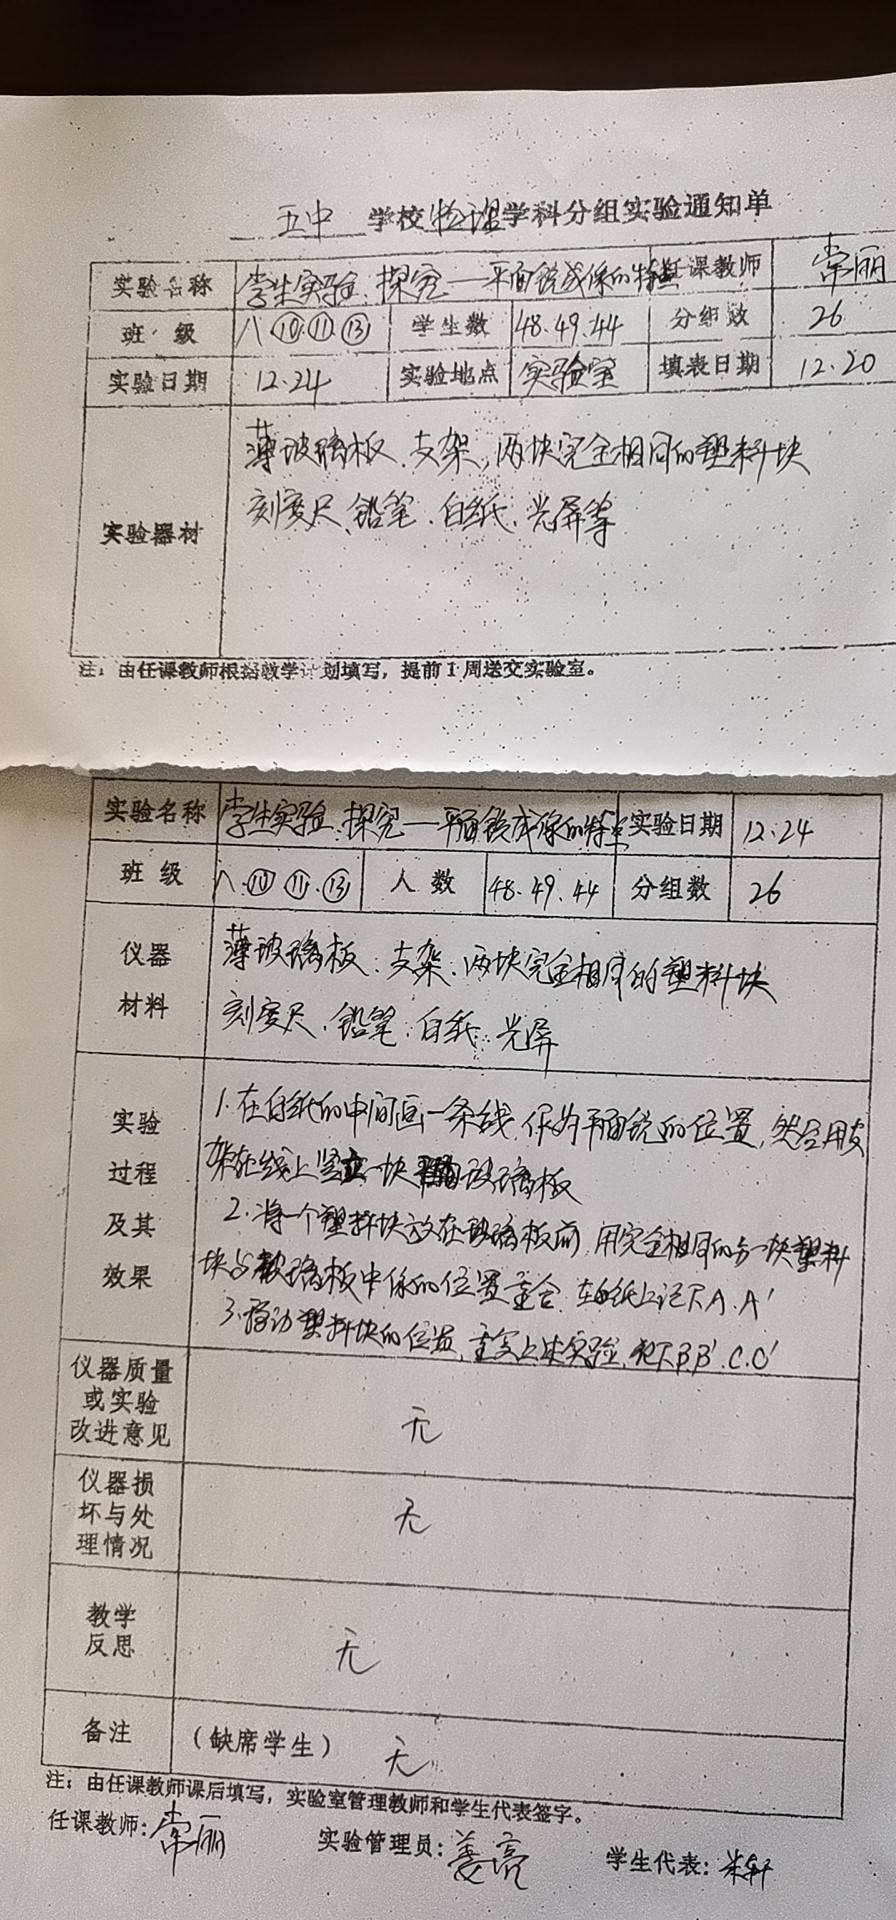 五中 学校物理学科分组实验通知单
实验名称 学生实验:探究一平面镜成像的特点 任课教师 常丽
班级 八⑩⑪⑬ 学生数 48.49.44 分组数 26
实验日期 12.24 实验地点 实验室 填表日期 12.20
实验器材
薄玻璃板、支架、两块完全相同的塑料块
刻度尺、铅笔、白纸、光屏等
注:由任课教师根据教学计划填写,提前1周送交实验室。
实验名称 学生实验:探究一平面镜成像的特点 实验日期 12.24
班级 八⑩⑪.⑬ 人数 48.49.44 分组数 26
仪器材料
薄玻璃板、支架、两块完全相同的塑料块
刻度尺、铅笔、白纸、光屏
实验过程及其效果
1.在白纸的中间画一条线,作为平面镜的位置,然后用支
架在线上竖立一块玻璃板
2.将一个塑料块放在玻璃板前,用完全相同的另一块塑料
块与玻璃板中像的位置重合,在白纸上记下A.A'
3.移动塑料块的位置,重复上述实验,记下B.B'.C.C'
仪器质量或实验改进意见 无
仪器损坏与处理情况 无
教学反思 无
备注 (缺席学生) 无
注:由任课教师课后填写,实验室管理教师和学生代表签字。
任课教师:常丽 实验管理员:姜亮 学生代表: